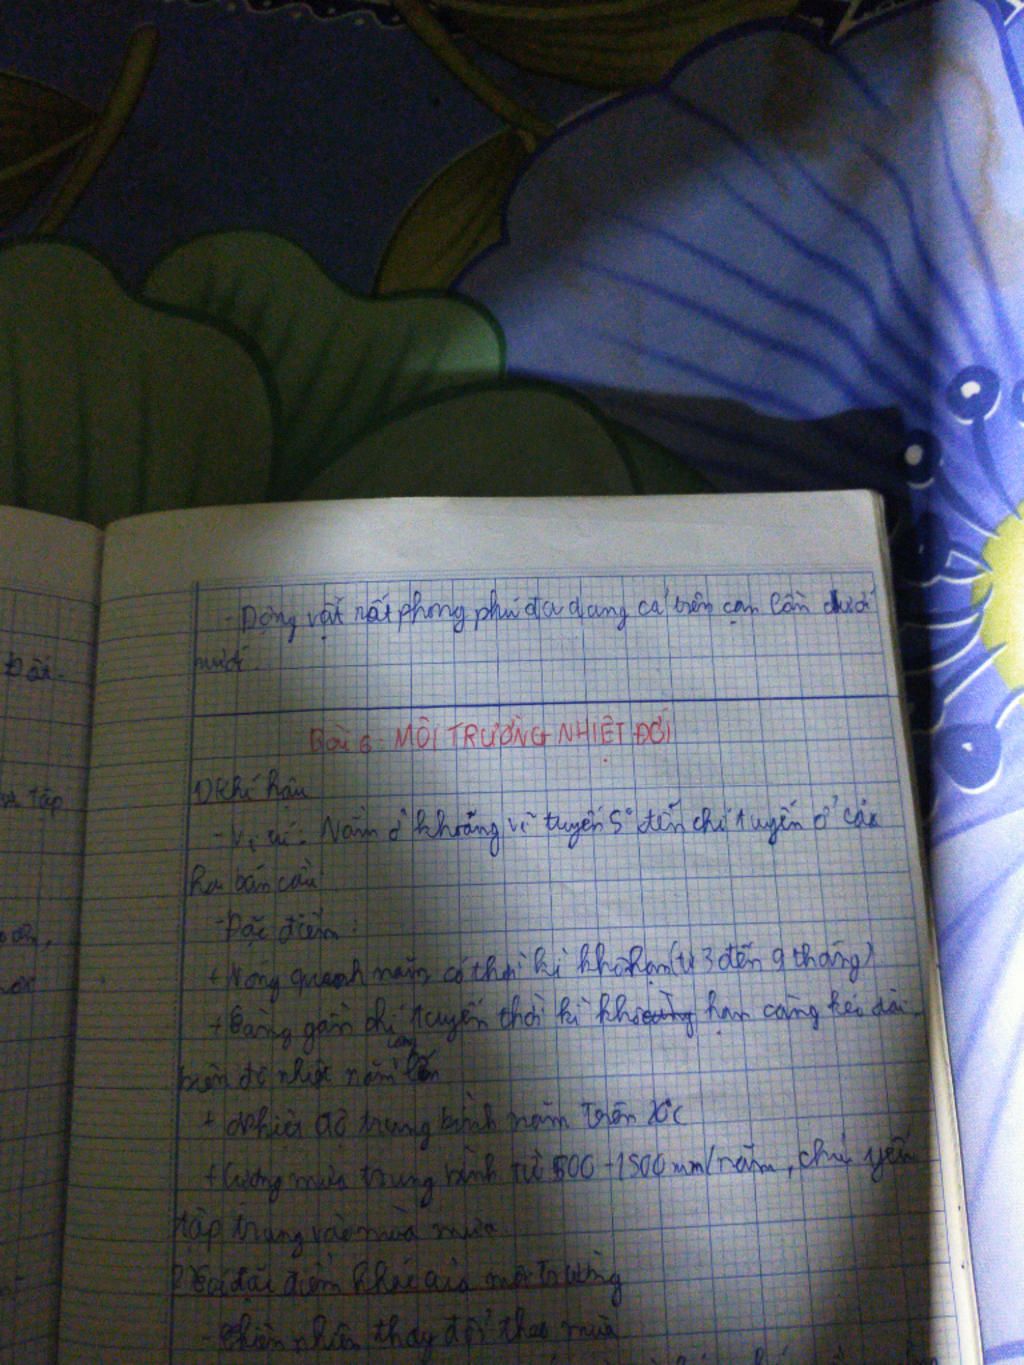 - Động vật rất phong phú đa dạng cả trên cạn lẫn dưới
nước.
Bài 6: MÔI TRƯỜNG NHIỆT ĐỚI
1) Khí hậu
- Vị trí: Nằm ở khoảng vĩ tuyến 5° đến chí tuyến ở cả
hai bán cầu
- Đặc điểm:
+ Nóng quanh năm, có thời kì khô hạn (từ 3 đến 9 tháng)
+ Càng gần chí tuyến thời kì khô hạn càng kéo dài,
biên độ nhiệt năm càng lớn
+ Nhiệt độ trung bình năm trên
+ Lượng mưa trung bình từ 500 - 1500 mm/năm, chủ yếu
tập trung vào mùa mưa
2) Các đặc điểm khác của môi trường
- Thiên nhiên thay đổi theo mùa
Đới
tập